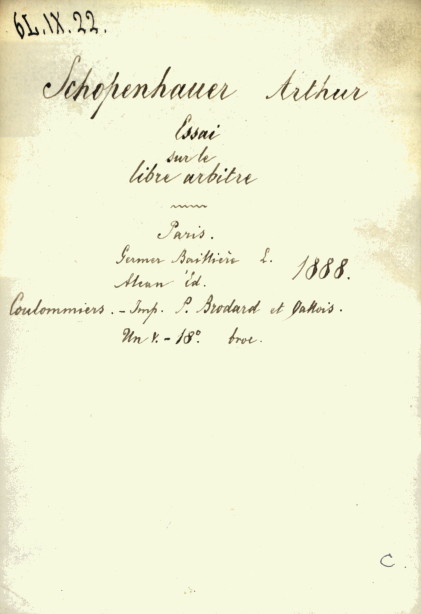 6L.IX.22.
Schopenhauer Arthur
Essai
sur le
libre arbitre
Paris.
Germer Baillière L.
Alcan Éd. 1888.
Coulommiers. - Imp. P. Brodard et Gallois.
Un v. - 18º. broc.
C.